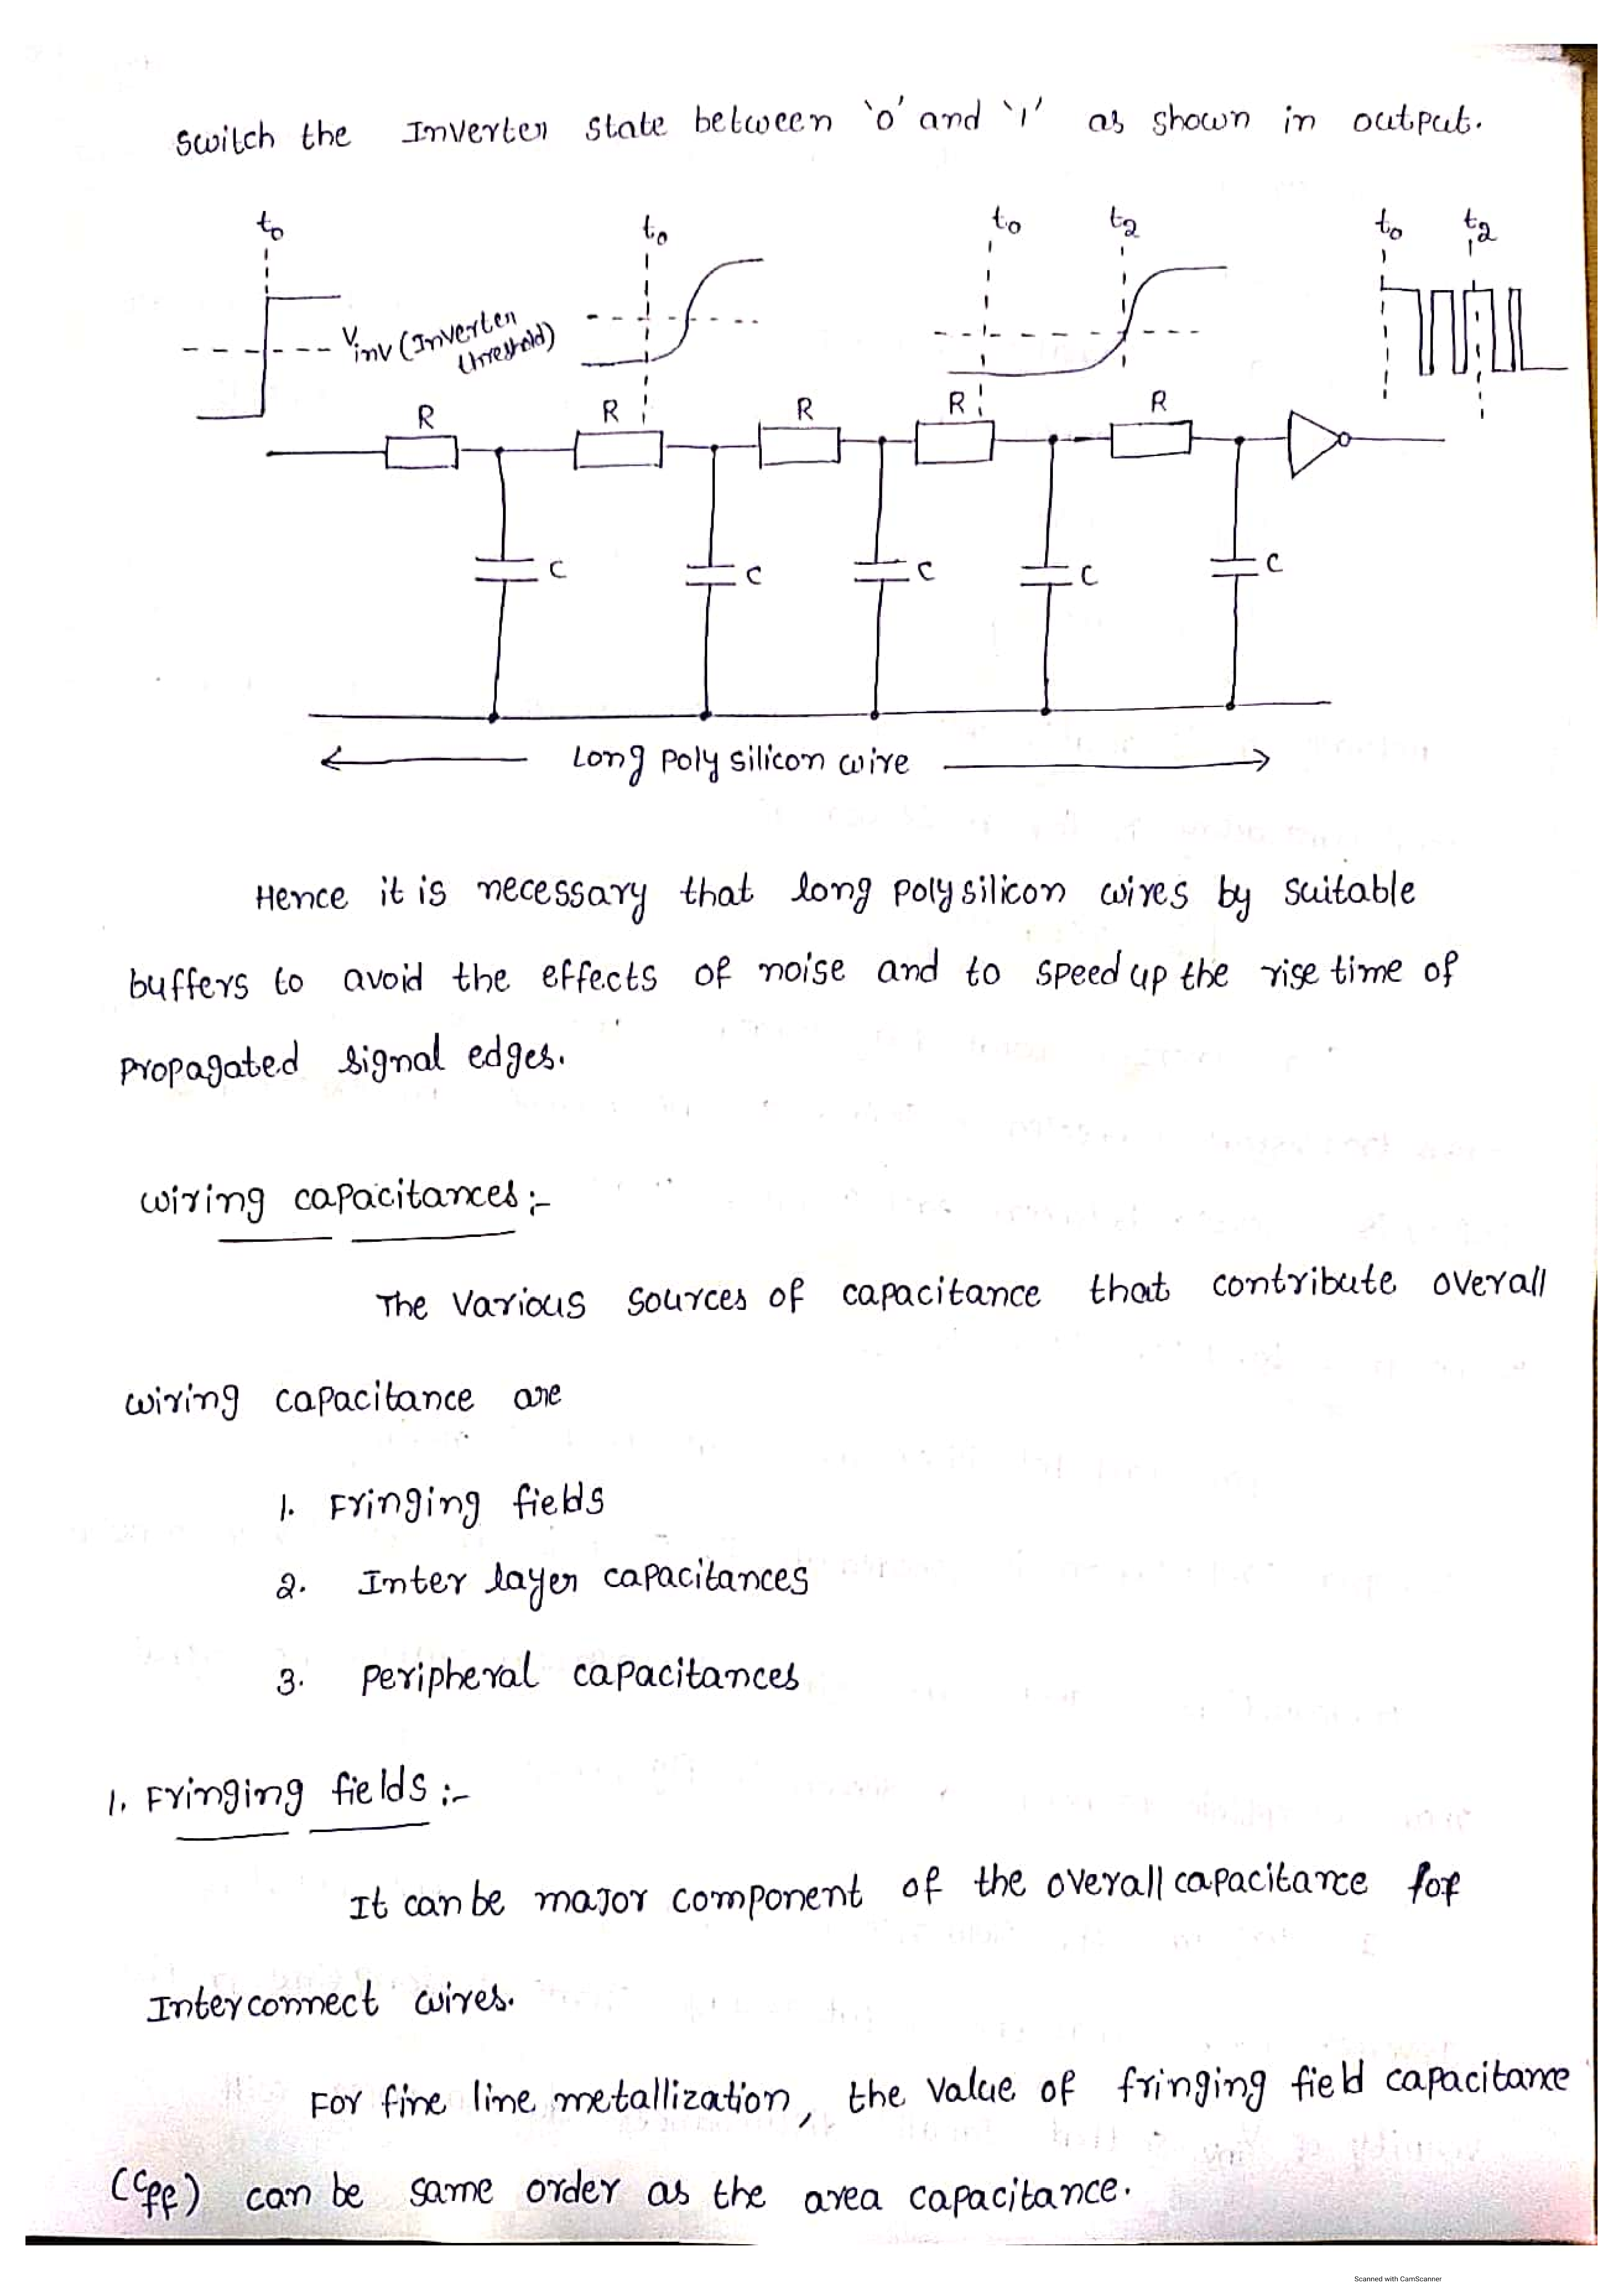 Switch the Inverter state between '0' and '1' as shown in output.
t0 t0 t0 t2 t0 t2
Vinv (Inverter
threshold)
R R R R R
C C C C C
Long poly silicon wire
Hence it is necessary that long poly silicon wires by suitable
buffers to avoid the effects of noise and to speed up the rise time of
propagated signal edges.
wiring capacitances :-
The various sources of capacitance that contribute overall
wiring capacitance are
1. Fringing fields
2. Inter layer capacitances
3. Peripheral capacitances
1. Fringing fields :-
It can be major component of the overall capacitance for
Interconnect wires.
For fine line metallization, the value of fringing field capacitance
(Cff) can be same order as the area capacitance.
Scanned with CamScanner